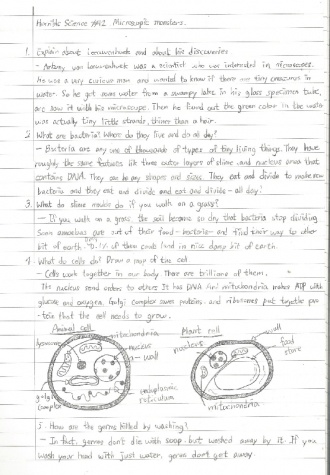 Horrible Science #42 Microscopic monsters.
1. Explain about Leeuwenhoek and about his discoveries
- Antony van Leeuwenhoek was a scientist who was interested in microscopes.
He was a very curious man and wanted to know if there are tiny creatures in
water. So he got some water from a swampy lake in his glass specimen tube,
and saw it with his microscope. Then he found out the green color in the water
was actually tiny little strands, thinner than a hair.
2. What are bacteria? Where do they live and do all day?
- Bacteria are any one of thousands of types of tiny living things. They have
roughly the same features like three outer layers of slime and nucleus area that
contains DNA. They can be any shapes and sizes. They eat and divide to make new
bacteria and they eat and divide and eat and divide - all day!
3. What do slime molds do if you walk on a grass?
- If you walk on a grass the soil become so dry that bacteria stop dividing
Soon amoebas run out of their food - bacteria - and find their way to other
bit of earth. 0.1% of them could find a nice damp bit of earth.
4. What do cells do? Draw a map of the cell
- Cells work together in our body. There are trillions of them.
The nucleus send orders to others. It has DNA and mitochondria makes ATP with
glucose and oxygen. Golgi complex store proteins, and ribosomes put together pro
-tein that the cell needs to grow.
Animal cell
Plant cell
lysosome
mitochondria
nucleus
wall
golgi complex
endoplasmic reticulum
nucleus
wall
food store
mitochondria
5. How are the germs killed by washing?
- In fact, germs don't die with soap, but washed away by it. If you
wash your hand with just water, germs don't get away.